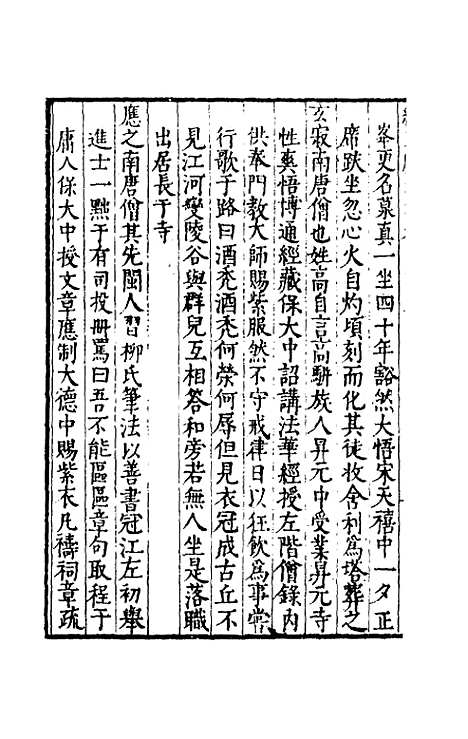 峯更名慕真一坐四十年豁然大悟宋天禧中一夕正
席趺坐忽心火自灼頃刻而化其徒收舍利爲塔葬之
玄寂南唐僧也姓高自言高駢族人昇元中受業昇元寺
性爽悟博通經藏保大中詔講法華經授左階僧錄內
供奉門教大師賜紫服然不守戒律日以狂飲爲事常
行歌于路曰酒禿酒禿何榮何辱但見衣冠成古丘不
見江河變陵谷與群兒互相答和旁若無人坐是落職
出居長干寺
應之南唐僧其先閩人習柳氏筆法以善書冠江左初舉
進士一黜于有司投册罵曰吾不能區區章句取程于
庸人保大中授文章應制大德中賜紫衣凡禱祠章疏